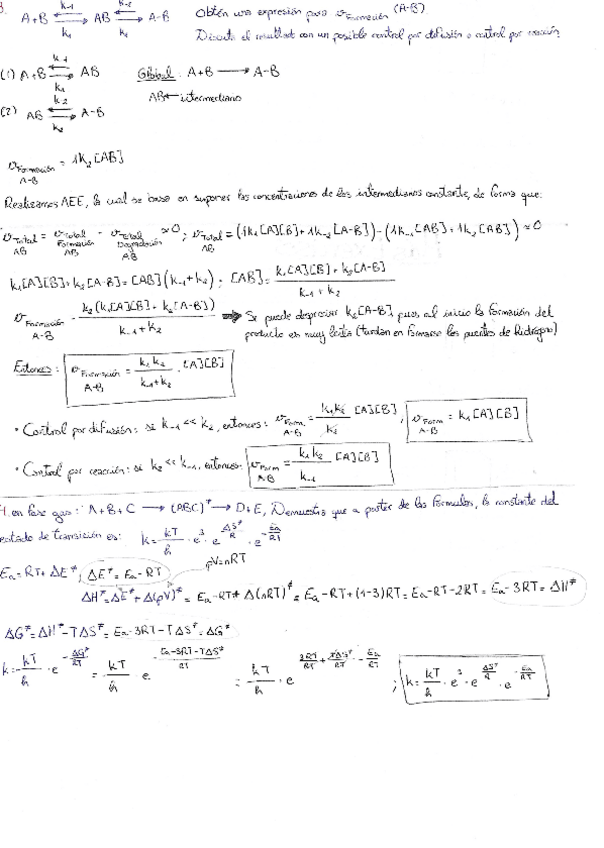 3. A+B ⇄ AB ⇄ A-B k₋₁ k₁ k₋₂ k₂ Obtén una expresión para v Formación (A-B)
Discute el resultado con un posible control por difusión o control por reacción
(1) A+B ⇄ AB k₋₁ k₁ Global: A+B ⟶ A-B
(2) AB ⇄ A-B k₋₂ k₂ AB ← intermediario
v Formación A-B = 1k₂[AB]
Realizamos AEE, la cual se basa en suponer las concentraciones de los intermediarios constante, de forma que:
v Total AB = v Total Formación AB - v Total Degradación AB ≈ 0 ; v Total AB = (1k₁[A][B] + 1k₋₂[A-B]) - (1k₋₁[AB] + 1k₂[AB]) ≈ 0
k₁[A][B] + k₂[A-B] = [AB](k₋₁+k₂) ; [AB] = (k₁[A][B] + k₂[A-B]) / (k₋₁+k₂)
v Formación A-B = k₂(k₁[A][B] + k₂[A-B]) / (k₋₁+k₂) ⟹ Se puede despreciar k₂[A-B] pues al inicio la formación del
producto es muy lenta (tardan en formarse los puentes de hidrógeno)
Entonces: v Formación A-B = (k₁k₂ / (k₋₁+k₂)) · [A][B]
• Control por difusión: si k₋₁ << k₂, entonces: v Form. A-B = (k₁k₂ / k₂) [A][B] ; v Form A-B = k₁[A][B]
• Control por reacción: si k₂ << k₋₁, entonces: v Form AB = (k₁k₂ / k₋₁) [A][B]
4. en fase gas: A+B+C ⟶ (ABC)^≠ ⟶ D+E, Demuestra que a partir de las fórmulas, la constante del
estado de transición es: k = (kT/h) · e³ · e^(ΔS^≠/R) · e^(-Ea/RT)
Ea = RT + ΔE^≠ ; ΔE^≠ = Ea - RT pV=nRT
ΔH^≠ = ΔE^≠ + Δ(pV)^≠ = Ea - RT + Δ(nRT)^≠ = Ea - RT + (1-3)RT = Ea - RT - 2RT = Ea - 3RT = ΔH^≠
ΔG^≠ = ΔH^≠ - TΔS^≠ = Ea - 3RT - TΔS^≠ = ΔG^≠
k = (kT/h) · e^(-ΔG^≠/RT) = (kT/h) · e^(-(Ea-3RT-TΔS^≠)/RT) = (kT/h) · e^(3RT/RT + TΔS^≠/RT - Ea/RT) ; k = (kT/h) · e³ · e^(ΔS^≠/R) · e^(-Ea/RT)